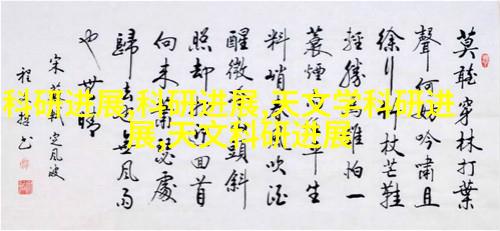 莫聽穿林打葉
聲何妨吟嘯且
徐行竹杖芒鞋
輕勝馬誰怕一
蓑煙平生
料峭吹酒
醒微頭斜
照却回首
向來蕭處
歸去無風雨
也無晴
宋定風波
程
科研进展,科研进展,天文学科研进
展,天文科研进展